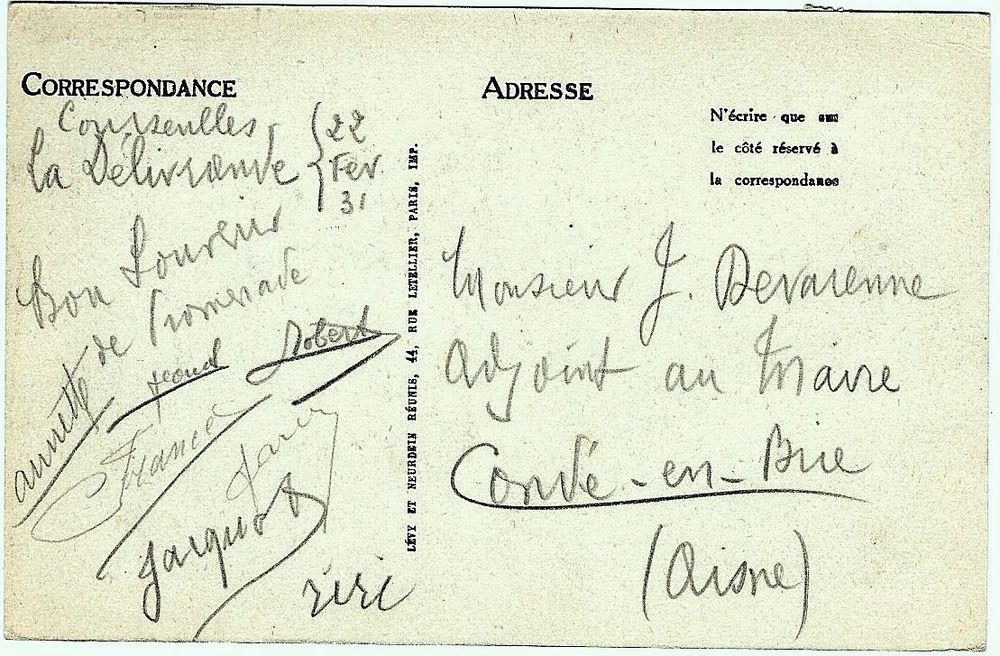 CORRESPONDANCE
Courseulles
La Délivrande
22
Fev
31
Bon Souvenir
de Promenade
Robert
annette
France
Jacquot
riri
LÉVY ET NEURDEIN RÉUNIS, 44, RUE LETELLIER, PARIS, IMP.
ADRESSE
N'écrire que sur
le côté réservé à
la correspondance
Monsieur J. Devarenne
Adjoint au Maire
Condé-en-Brie
(Aisne)